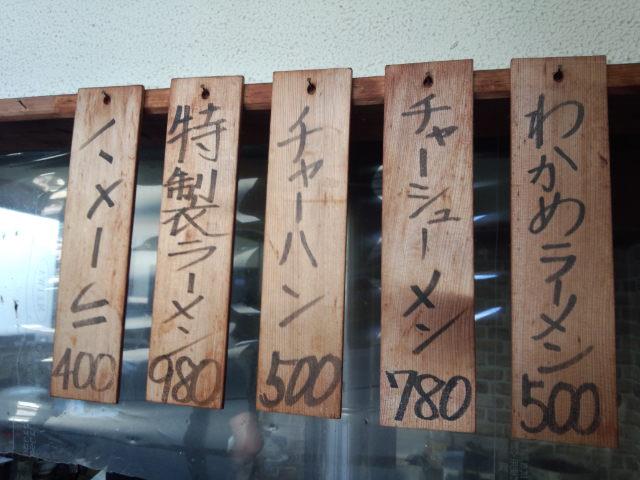 わかめラーメン
500
チャーシューメン
780
チャーハン
500
特製ラーメン
980
ラーメン
400